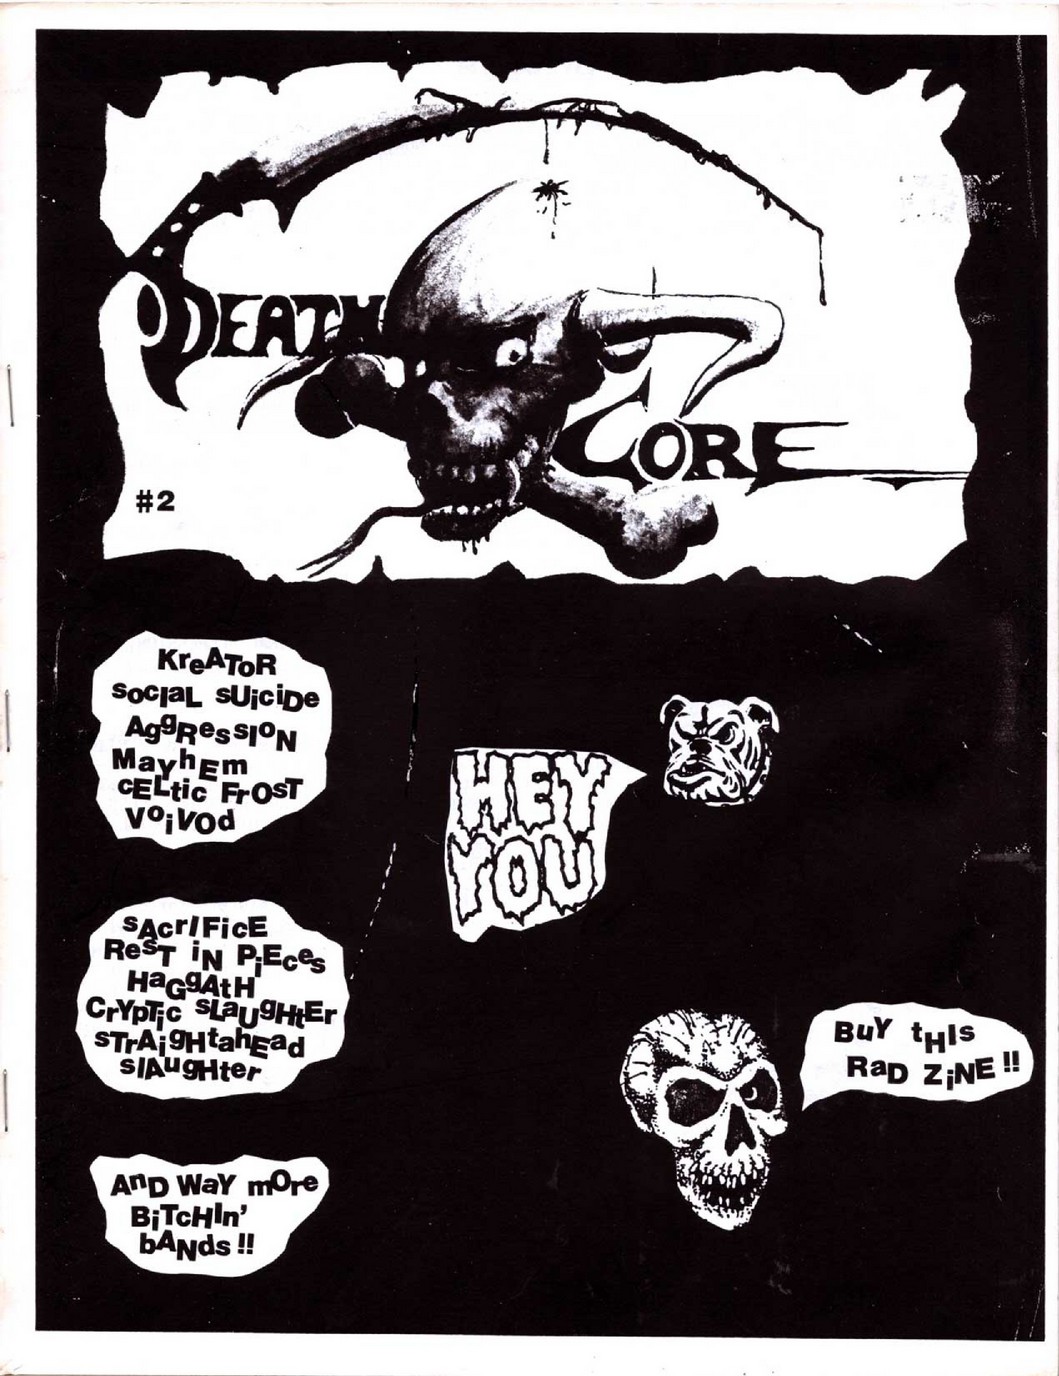 DEATH
CORE
#2
KreAToR
SociaL sUiciDe
AggRessIoN
MayhEm
cELtic FrOsT
VoiVOd
sAcrIFicE
ReST iN PiEces
HaGgAtH
CrYpTic sLaUgHtEr
sTrAigHtahEad
slAugHter
AnD WaY mOre
BiTcHIn'
bANds !!
HEY
YOU
BuY tHIs
RaD ZiNE !!